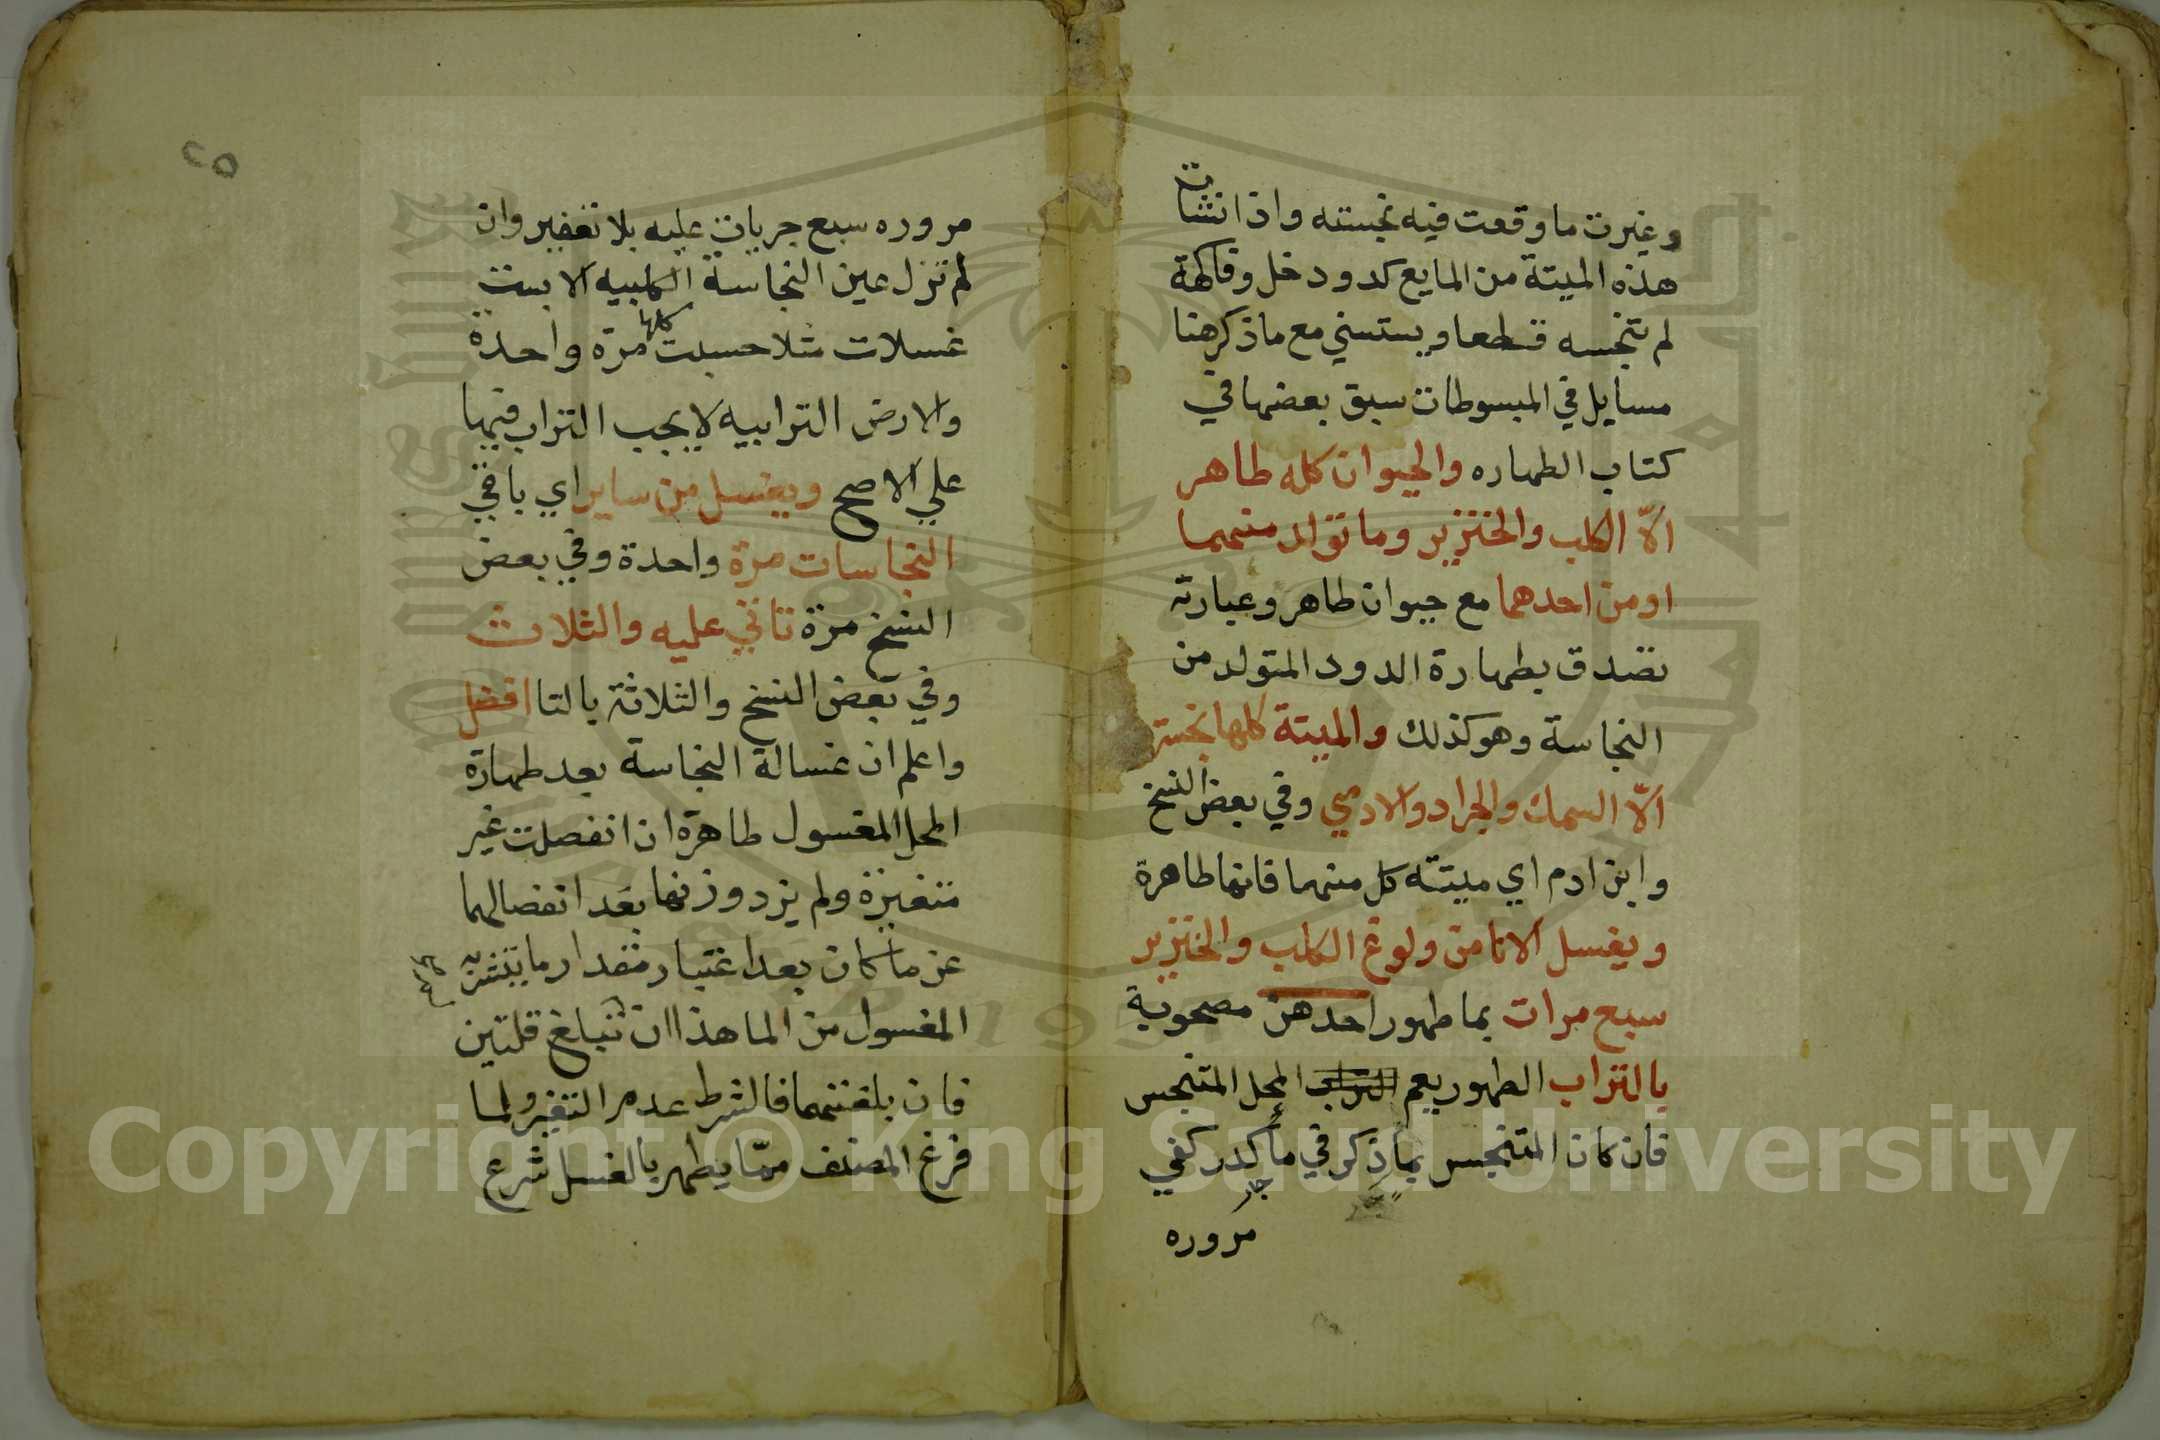 وغيرت ما وقعت فيه نجسته واذا نشات
هذه الميتة من المايع كدود خل وفاكهة
لم تنجسه قطعا ويستسني مع ما ذكر هنا
مسايل في المبسوطات سبق بعضها في
كتاب الطهاره والحيوان كله طاهر
الّا الكلب والخنزير وما تولد منهما
او من احدهما مع حيوان طاهر وعبارته
تصدق بطهارة الدود المتولد من
النجاسة وهو كذلك والميتة كلها نجسة
الّا السمك والجراد والادمي وفي بعض النسخ
وابن ادم اي ميتته كل منهما فانها طاهرة
ويغسل الانا من ولوغ الكلب والخنزير
سبع مرات بما طهور احدهن مصحوبة
بالتراب الطهور يعم المحل المتنجس
فان كان المتنجس بما ذكر في ما كدر كفي
جار
مروره
٢٥
مروره سبع جريات عليه بلا تعفير وان
لم تزل عين النجاسة الكلبيه الا بست
غسلات مثلا حسبت كلها مرة واحدة
والارض الترابيه لا يجب التراب فيها
علي الاصح ويغسل من ساير اي باقي
النجاسات مرة واحدة وفي بعض
النسخ مرة تاتي عليه والثلاث
وفي بعض النسخ والثلاثة بالتا افضل
واعلم ان غسالة النجاسة بعد طهارة
المحل المغسول طاهرة ان انفصلت غير
متغيرة ولم يزد وزنها بعد انفصالها
عن ما كان بعد اعتبار مقدار ما يتشربه
المغسول من الما هذا ان لم تبلغ قلتين
فان بلغتهما فالشرط عدم التغير ولما
فرغ المصنف ممّا يطهر بالغسل شرع
Copyright © King Saud University
1957